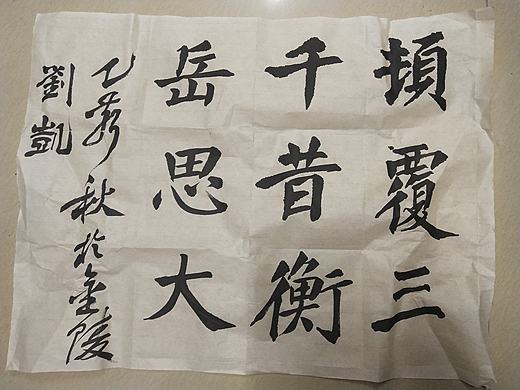 頓覆三
千昔衡
岳思大
乙秋於金陵
劉凱